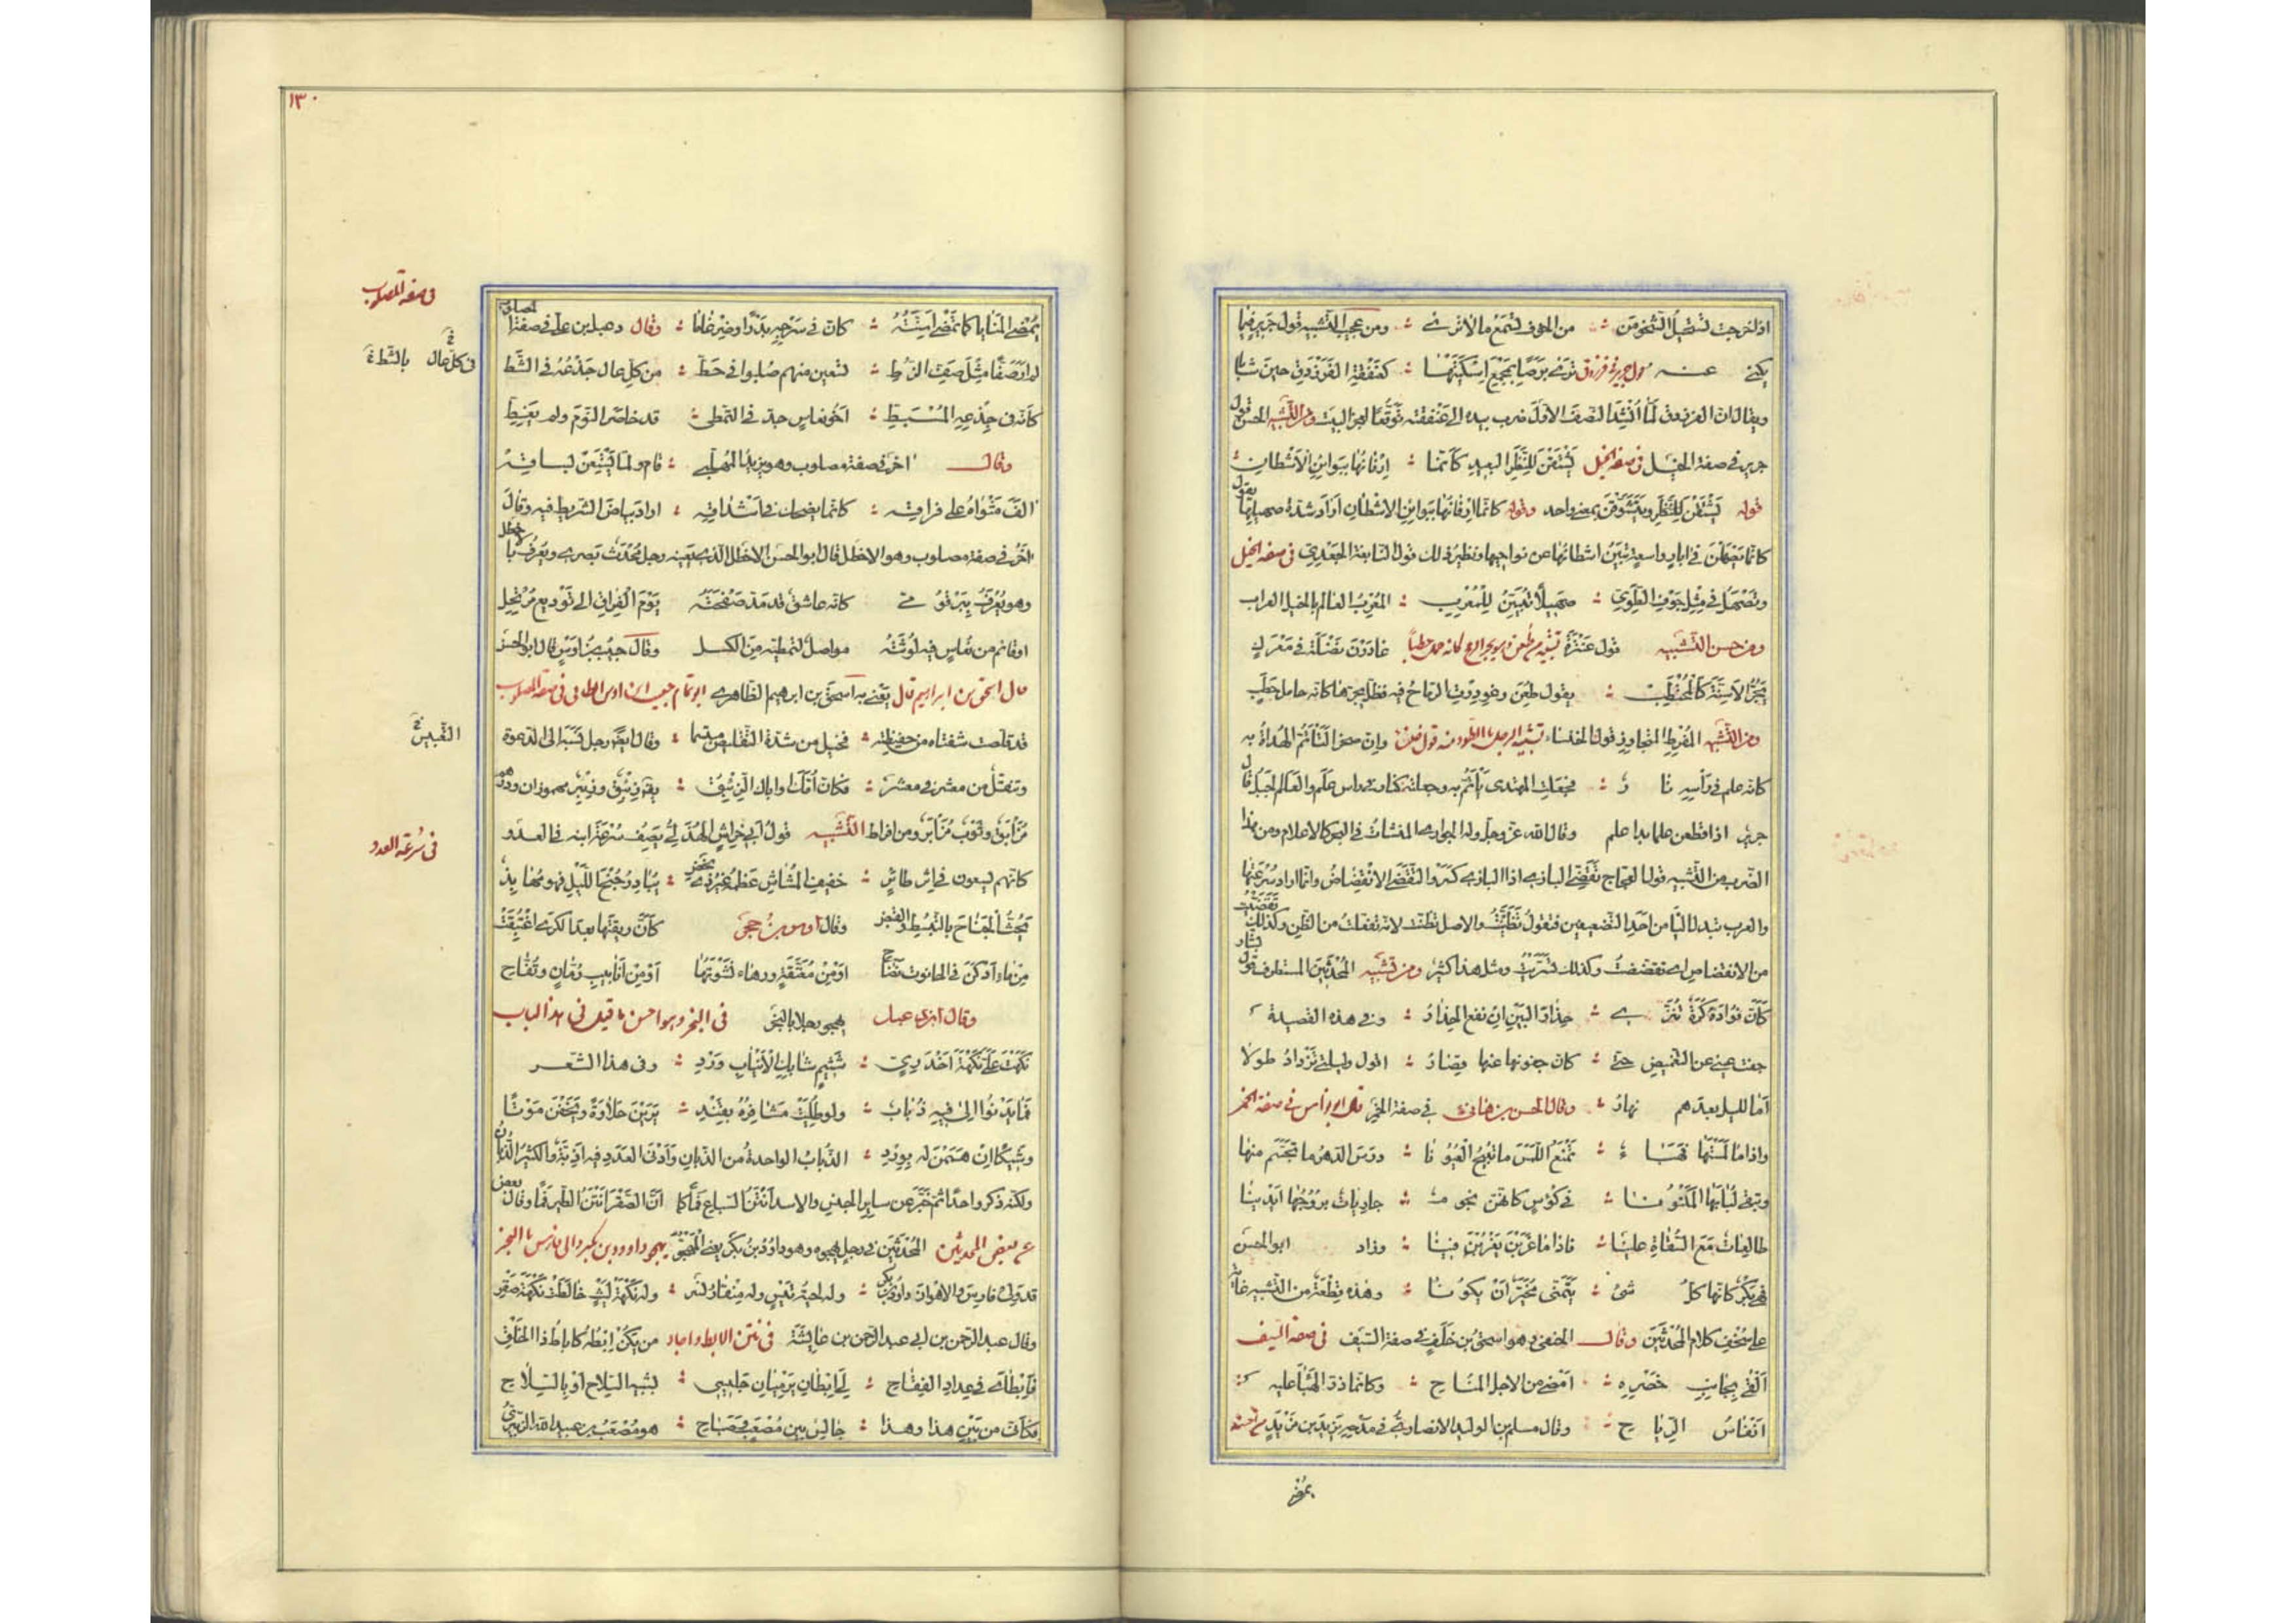 اذا خرجت لتنصيل الشخوص من الخوف لتسمع ما لا ترى ومن عجيب التشبيه قول جرير فيما
يكنى عنه قول جرير في فرزدق ترى برصا بمجمع اسكتيها كعنفقة الفرزدق حين شابا
ويقال ان الفرزدق لما انشد النصف الاول ضرب بيده الى عنفقته توقعا لعجز البيت ومن التشبيه الحسن قول
جرير في صفة الخيل في صفة الخيل يشتفن للنظر البعيد كأنما ارنانها ببوائن الاشطان
قوله يشتفن للنظر ويتشوفن بمعنى واحد وقوله كانما ارنانها ببوائن الاشطان اراد شدة صهيلها يقول
كانما يصهلن في ابار واسعة تبين اشطانها عن نواحيها ونظير ذلك قول النابغة الجعدي في صفة الخيل
وتصهل في مثل جوف الطوي صهيلا تبين للمعرب المعرب العالم بالخيل العراب
ومن حسن التشبيه قول عنترة غادرن نضلة في معرك
يجر الاسنة كالمحتطب يقول طعن وغودرت الرماح فيه فظل يجرها كانه حامل حطب
ومن التشبيه المفرط المتجاوز قول الخنساء وان صخرا لتاتم الهداة به
كانه علم في راسه نار فجعلت المهتدي ياتم به وجعلته كنار في راس علم والعلم الجبل قال
جرير اذا قطعن علما بدا علم وقال الله عز وجل وله الجوار المنشات في البحر كالاعلام ومن هذا
الضرب من التشبيه قول العجاج تقضي البازي اذا البازي كسر والتقضي الانقضاض وانما اراد سرعتها
والعرب تبدل الياء من احد التضعيفين فتقول تظنيت والاصل تظننت لانه تفعلت من الظن وكذلك تقضيت
من الانقضاض اي تقضضت وكذلك تسريت ومثل هذا كثير ومن تشبيه المحدثين المستطرف قول بشار
كأن فؤاده كرة تنزى حذار البين ان نفع الحذار وفي هذه القصيدة
جفت عيني عن التغميض حتى كان جفونها عنها قصار اقول وليلتي تزداد طولا
اما لليل بعدهم نهار وقال الحسن بن هانئ في صفة الخمر قال ابو نواس في صفة الخمر
واذا ما لمستها فهباء تمنع اللمس ما تبيح العيونا درس الدهر ما تجسم منها
وتبقى لبابها المكنونا في كؤس كانهن نجوم جاريات بروجها ايدينا
طالعات مع السقاة علينا فاذا ما غربن يغربن فينا وزاد ابو الحسن
في بكر كانها كل شئ يتمنى مخير ان يكونا وهذه قطعة من التشبيه غاية
على سخف كلام المحدثين وقال الحنفي وهو اسحق بن خلف في صفة السيف في صفة السيف
القى بجانب خصره امضى من الاجل المتاح وكانما ذر الهباء عليه
انفاس الرياح وقال مسلم بن الوليد الانصاري في مدحه يزيد بن مزيد
يمضى
١٣٠
يمضي المنايا كما تمضي اسنته كان في سرجه بدرا وضرغاما وقال دعبل بن علي في صفة المصلوب
في صفة المصلوب
لم ار صفا مثل صف الزط تسعين منهم صلبوا في خط من كل عال جذعه في الشط
في كل حال بالشط خ
كانه في جذعه المشتط اخو نعاس جد في التمطي قد خامر النوم ولم يغط
وقال اخر في صفة مصلوب وهو يزيد المهلبي قام ولما يستعن بساقه
الف مثواه على فراقه كانما يضحك في اشداقه اراد بياض الشريط فيه وقال
اخر في صفة مصلوب وهو الاخطل قال ابو الحسن الاخطل الذي يعنيه رجل محدث بصري ويعرف بالاخيطل
وهو يعرف ببرقوقى كانه عاشق قد مد صفحته يوم الفراق الى توديع مرتحل
او قائم من نعاس فيه لوثته مواصل لتمطيه من الكسل وقال حبيب بن اوس قال ابو الحسن
قال اسحق بن ابراهيم قال يعني به اسحق بن ابراهيم الظاهري ابو تمام حبيب ابن اوس الطائي في صفة المصلوب
قد قلصت شفتاه من حفيظته فخيل من شدة التقليص مبتسما وقال ايضا في رجل نسبه الى الدعوة
التعبيس خ
وتنقل من معشر في معشر فكان امك او اباك الزئبق يقال زئبق وزئبر مهموزان ودرهم
مزأبق وثوب مزأبر ومن افراط التشبيه قول ابي خراش الهذلي يصف سرعة ابنه في العدو
في سرعة العدو
كانهم يسعون في اثر طائر خفيف المشاش عظمه غير ذي نحض يبادر جنح الليل فهو مهابذ
يحث الجناح بالتبسط والقبض وقال اوس بن حجر كأن ريقتها بعد الكرى اغتبقت
من ماء ادكن في الحانوت نضاح او من معتقة ورهاء نشوتها او من انابيب رمان وتفاح
وقال اخر في عبد يهجو رجلا بالبخر في البخر وهو احسن ما قيل في هذا الباب
نكهت علي نكهة اخدري شتيم شابك الانياب ورد وفي هذا الشعر
فما يدنو الى فيه ذباب ولو طليت مشافره بقند يرين حلاوة ويخفن موتا
وشيكا ان هممن له بورد الذباب الواحدة من الذبان وادنى العدد فيه اذبة والكثير الذبان
ولكنه ذكر واحدا ثم خبر عن سائر الجنس والاسد انتن السباع فما كما ان الصقر انتن الطير فما وقال بعض
المحدثين في رجل يهجوه وهو داود بن بكر يهجو داوود بن بكر والي فارس بالبخر
قد ولي فارس والاهواز داود بن بكر وله لحية تيس وله منقار نسر وله نكهة ليث خالطت نكهة صقر
وقال عبد الرحمن بن ابي عبد الرحمن بن عائشة في نتن الابط واجاد من يكن ابطه كاباط ذا الخلق
فابطاي في عداد الفقاح لي ابطان يرميان جليسي بشبيه السلاح او بالسلاح
فكأني من بين هذا وهذا جالس بين مصعب وصباح هو مصعب بن عبد الله الزبيري